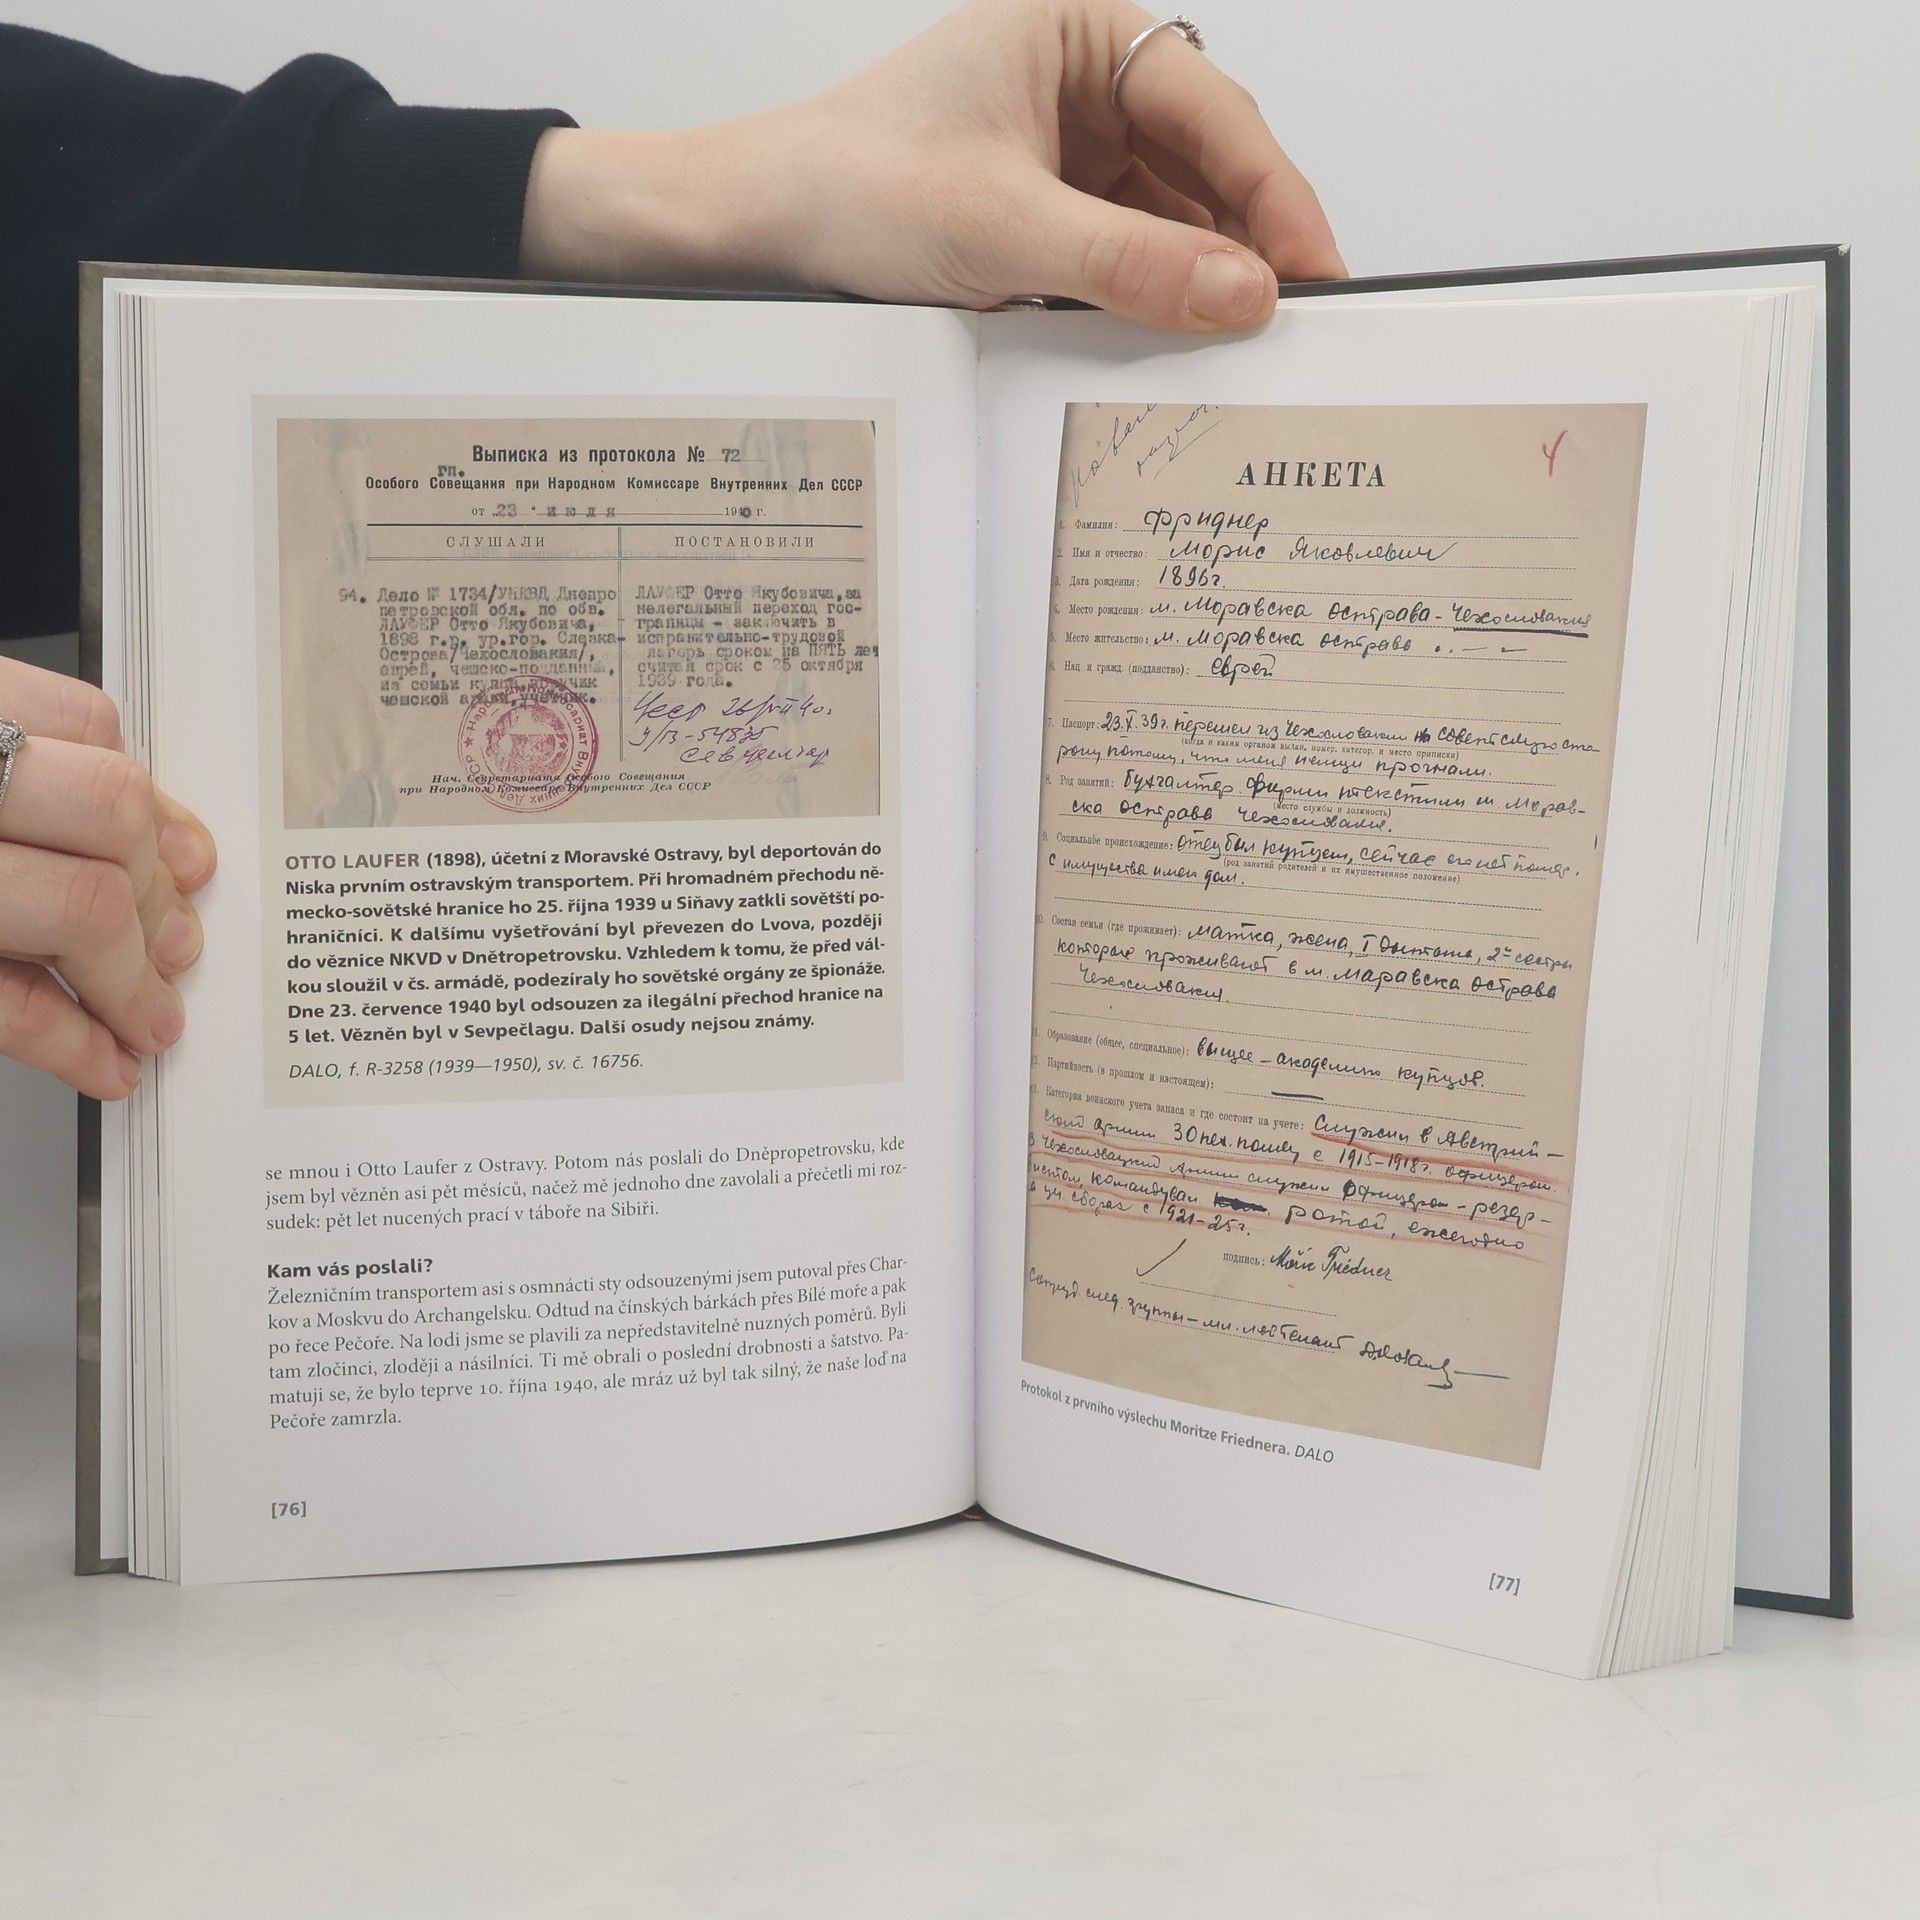 Выписка из протокола № 72
гп.
Особого Совещания при Народном Комиссаре Внутренних Дел СССР
от 23 " июля 1940 г.
СЛУШАЛИ
94. Дело № 1734/УНКВД Днепро
петровской обл. по обв.
ЛАУФЕР Отто Якубовича,
1898 г.р. ур.гор.
Острова/Чехословакия/,
еврей, чешско-подданный,
из семьи купца,
чешской
ПОСТАНОВИЛИ
ЛАУФЕР Отто Якубовича, за
нелегальный переход гос-
границы - заключить в
исправительно-трудовой
лагерь сроком на ПЯТЬ лет
считая срок с 25 октября
1939 года.
Нач. Секретариата Особого Совещания
при Народном Комиссаре Внутренних Дел СССР
OTTO LAUFER (1898), účetní z Moravské Ostravy, byl deportován do
Niska prvním ostravským transportem. Při hromadném přechodu ně-
mecko-sovětské hranice ho 25. října 1939 u Siňavy zatkli sovětští po-
hraničníci. K dalšímu vyšetřování byl převezen do Lvova, později
do věznice NKVD v Dnětropetrovsku. Vzhledem k tomu, že před vál-
kou sloužil v čs. armádě, podezíraly ho sovětské orgány ze špionáže.
Dne 23. července 1940 byl odsouzen za ilegální přechod hranice na
5 let. Vězněn byl v Sevpečlagu. Další osudy nejsou známy.
DALO, f. R-3258 (1939—1950), sv. č. 16756.
se mnou i Otto Laufer z Ostravy. Potom nás poslali do Dněpropetrovsku, kde
jsem byl vězněn asi pět měsíců, načež mě jednoho dne zavolali a přečetli mi roz-
sudek: pět let nucených prací v táboře na Sibiři.
Kam vás poslali?
Železničním transportem asi s osmnácti sty odsouzenými jsem putoval přes Char-
kov a Moskvu do Archangelsku. Odtud na čínských bárkách přes Bílé moře a pak
po řece Pečoře. Na lodi jsme se plavili za nepředstavitelně nuzných poměrů. Byli
tam zločinci, zloději a násilníci. Ti mě obrali o poslední drobnosti a šatstvo. Pa-
matuji se, že bylo teprve 10. října 1940, ale mráz už byl tak silný, že naše loď na
Pečoře zamrzla.
[76]
4
АНКЕТА
1. Фамилия: Фриднер
2. Имя и отчество: Морис Яковлевич
3. Дата рождения: 1896 г.
4. Место рождения: м. Моравска острава - Чехословакия
5. Место жительство: м. Моравска острава
6. Нац и гражд. (подданство): еврей
7. Паспорт: 23.X.39 г. перешел из Чехословакии на советскую сто-
(когда и каким органом выдан, номер, категор. и место приписки)
рону потому, что меня немци прогнали.
8. Род занятий: бухгалтер фирми текстили м. Морав-
(место службы и должность)
ска острава Чехословакия.
9. Социальное происхождение: отец был купцем, сейчас его нет
(род занятий родителей и их имущественное положение)
с имущества имел дом.
10. Состав семьи (где проживает): матка, жена, 1 дитина, 2 сестри
которые проживают в м. Маравска острава
Чехословакия.
11. Образование (общее, специальное): высшее - академию купцов.
12. Партийность (в прошлом и настоящем): —
13. Категория воинского учета запаса и где состоит на учете: Служил в Австрий-
ской армии 30 пех. полку с 1915-1918 г. офицером.
В Чехословацкий Армии служил офицером - резер-
вистом, командувал ротой, ежегодно
сборах с 1921-25 г.
подпись: Móric Friedner
след. группы - мл. лейтенант
Protokol z prvního výslechu Moritze Friednera. DALO
[77]